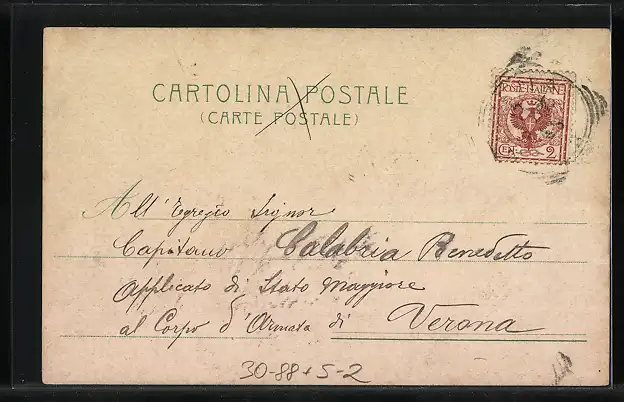 CARTOLINA POSTALE
(CARTE POSTALE)
POSTE ITALIANE
CEN. 2
All' Egregio Signor
Capitano Calabria Benedetto
Applicato di Stato Maggiore
al Corpo d'Armata di Verona
30-88+5-2